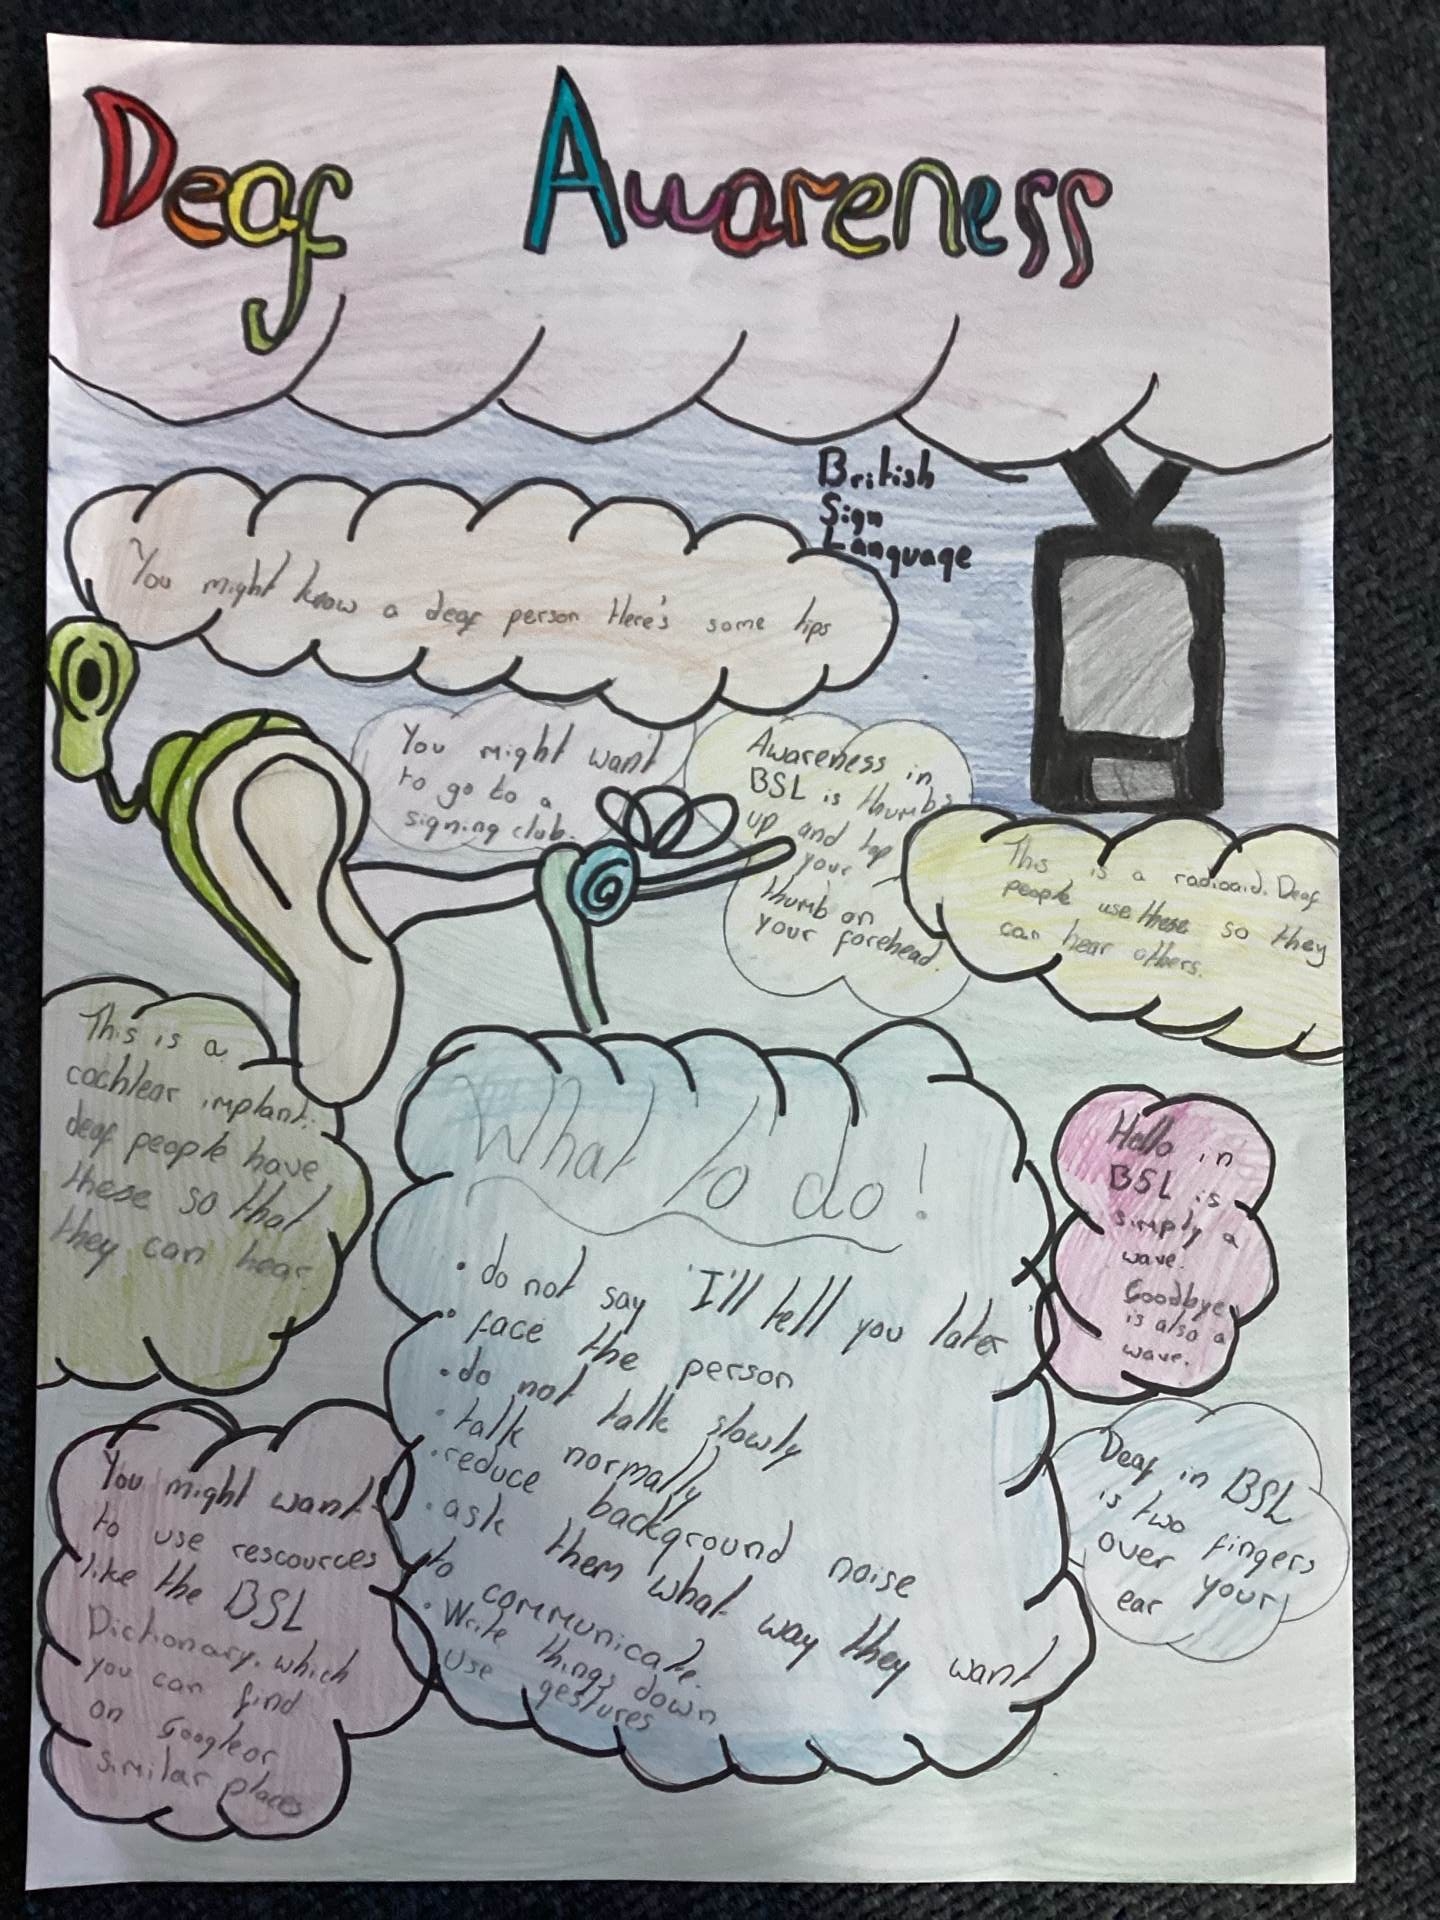 Deaf Awareness
British
Sign
Language
You might know a deaf person Here's some tips
You might want
to go to a
signing club.
Awareness in
BSL is thumbs
up and tap
your
thumb on
your forehead.
This is a radioaid. Deaf
people use these so they
can hear others.
This is a
cochlear implant.
deaf people have
these so that
they can hear
What to do!
• do not say 'I'll tell you later
• face the person
• do not talk slowly
• talk normally
• reduce background noise
• ask them what way they want
to communicate.
• Write things down
• use gestures
Hello in
BSL is
simply a
wave.
Goodbye
is also a
wave.
Deaf in BSL
is two fingers
over your
ear
You might want
to use rescources
like the BSL
Dictionary. which
you can find
on Google or
similar places